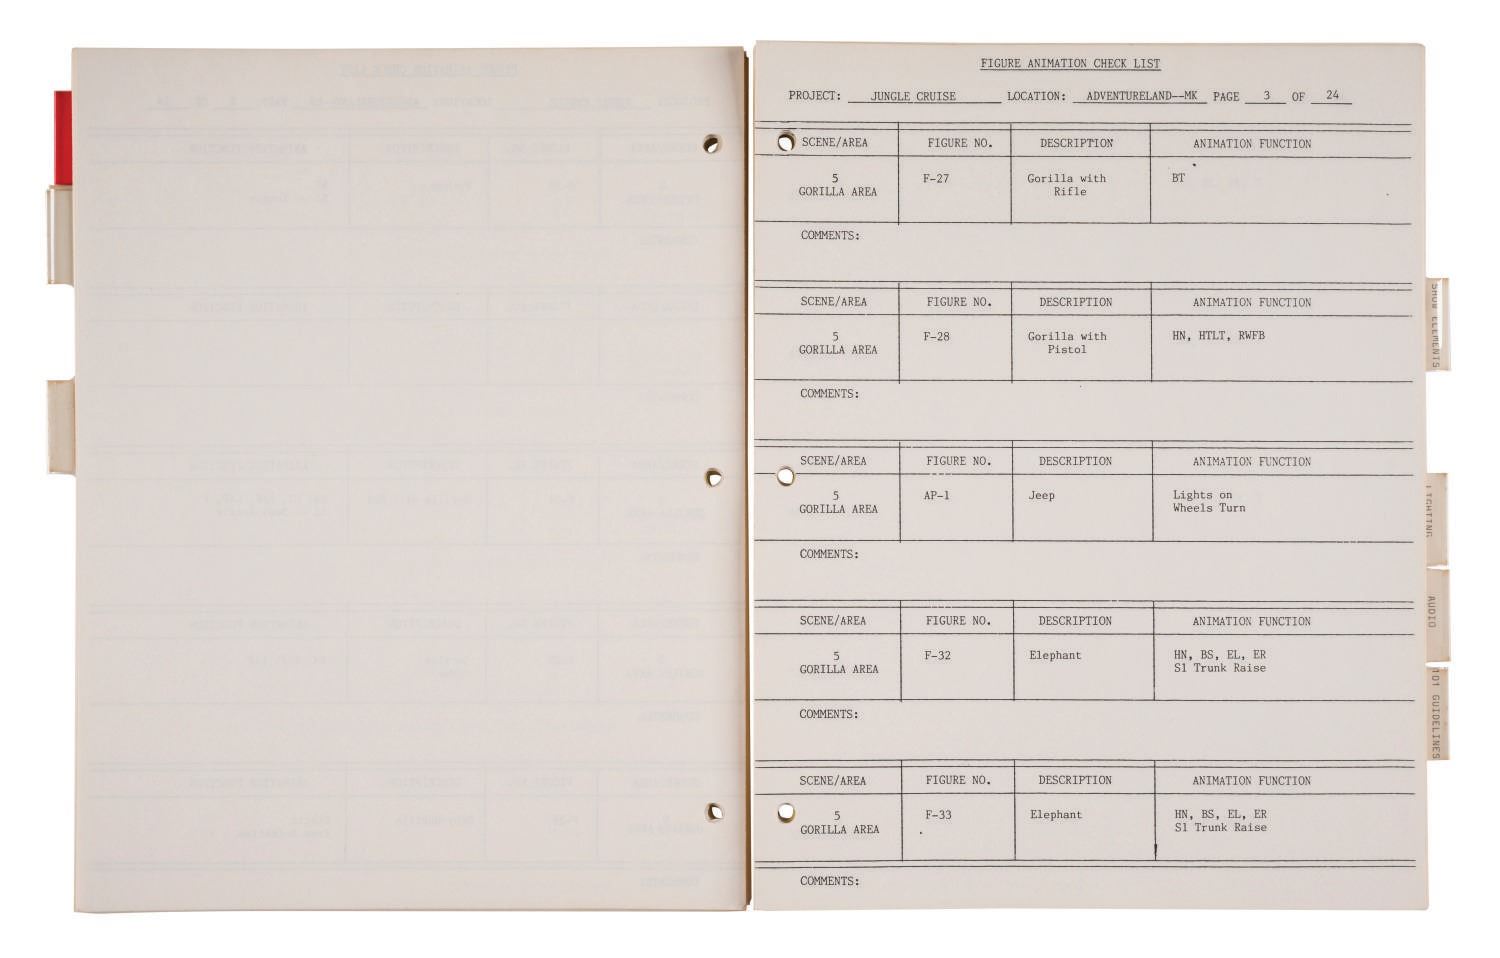 FIGURE ANIMATION CHECK LIST
PROJECT: JUNGLE CRUISE LOCATION: ADVENTURELAND--MK PAGE 3 OF 24
SCENE/AREA FIGURE NO. DESCRIPTION ANIMATION FUNCTION
5 F-27 Gorilla with BT
GORILLA AREA Rifle
COMMENTS:
SCENE/AREA FIGURE NO. DESCRIPTION ANIMATION FUNCTION
5 F-28 Gorilla with HN, HTLT, RWFB
GORILLA AREA Pistol
COMMENTS:
SCENE/AREA FIGURE NO. DESCRIPTION ANIMATION FUNCTION
5 AP-1 Jeep Lights on
GORILLA AREA Wheels Turn
COMMENTS:
SCENE/AREA FIGURE NO. DESCRIPTION ANIMATION FUNCTION
5 F-32 Elephant HN, BS, EL, ER
GORILLA AREA S1 Trunk Raise
COMMENTS:
SCENE/AREA FIGURE NO. DESCRIPTION ANIMATION FUNCTION
5 F-33 Elephant HN, BS, EL, ER
GORILLA AREA S1 Trunk Raise
COMMENTS:
SHOW ELEMENTS
LIGHTING
AUDIO
101 GUIDELINES